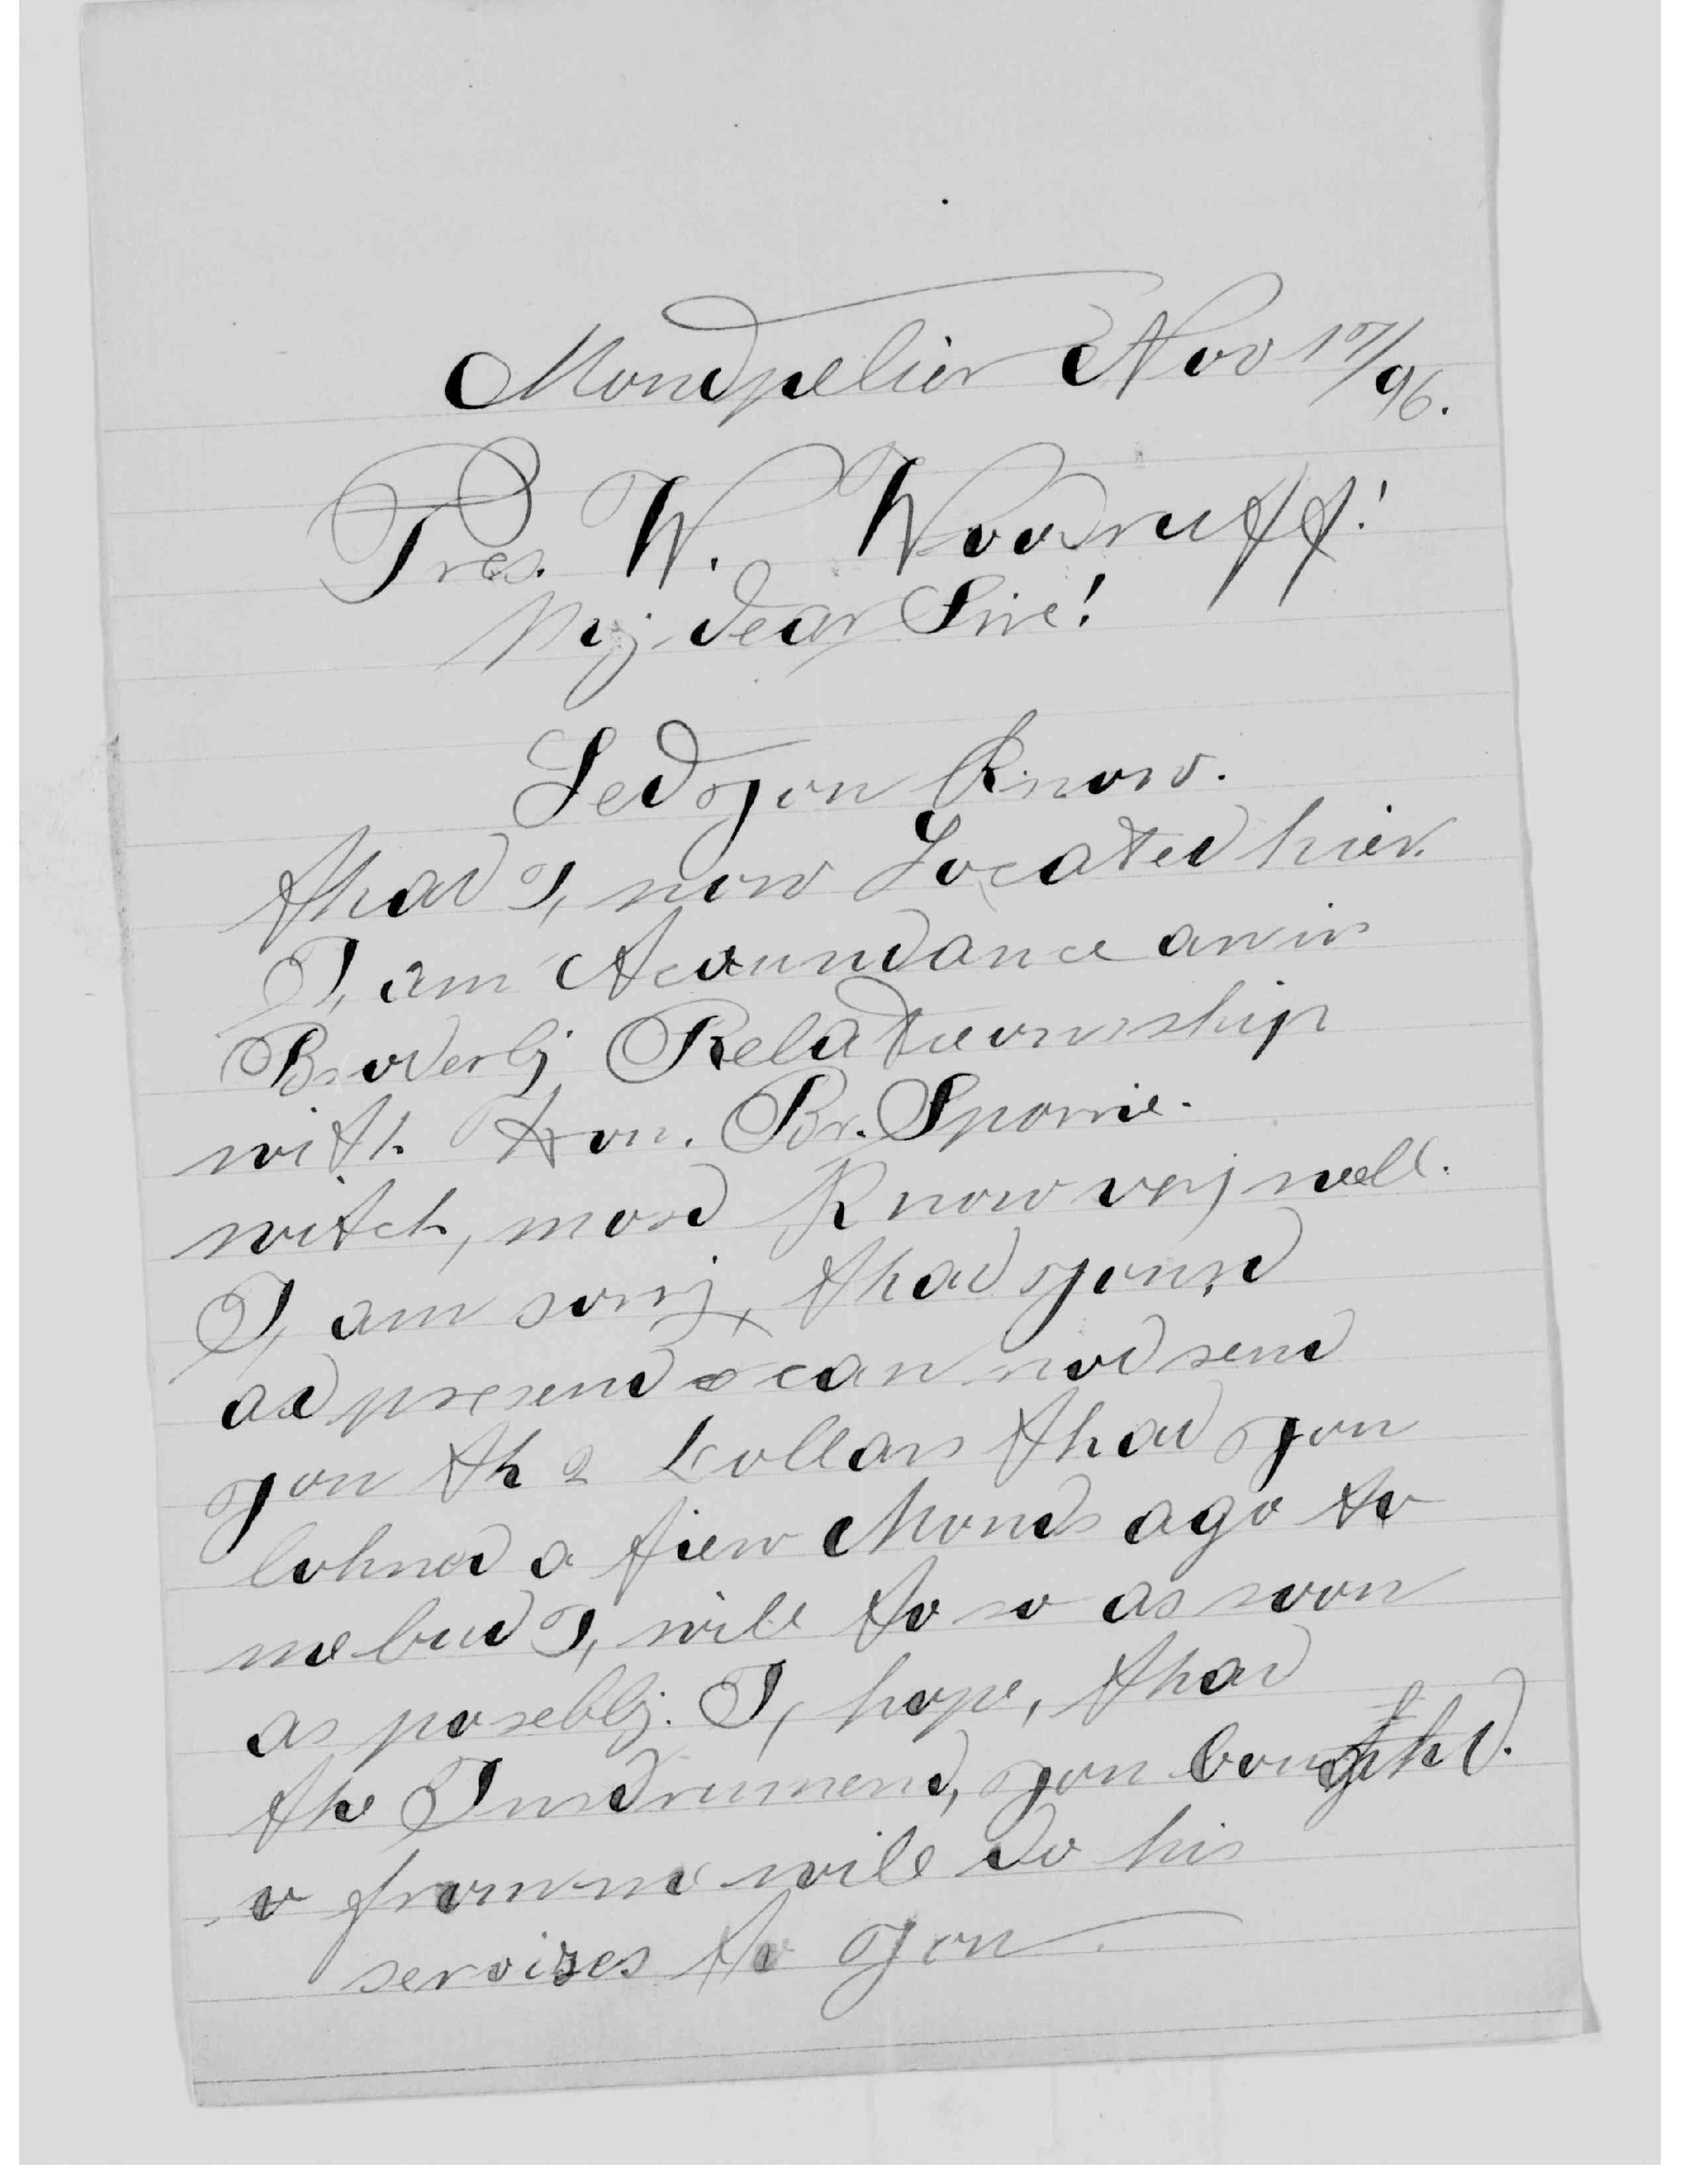 Mondpelier Nov 17/96.
Pres. W. Woodruff!
My dear Sire!
Led you Know.
thad I, now Located hier.
I, am Acoundance an in
Broderly Relationship
with Hon. Br. Sponie.
witch, mosd Know very well.
I, am sorry, thad youn
ad presend can nod send
you th 2 Dollars thad you
lohned a fiew Monds ago to
me bud I, will to so as soon
as poseblly. I, hope, thad
the Insdrumend, you boughtd.
from me will do his
servizes to you